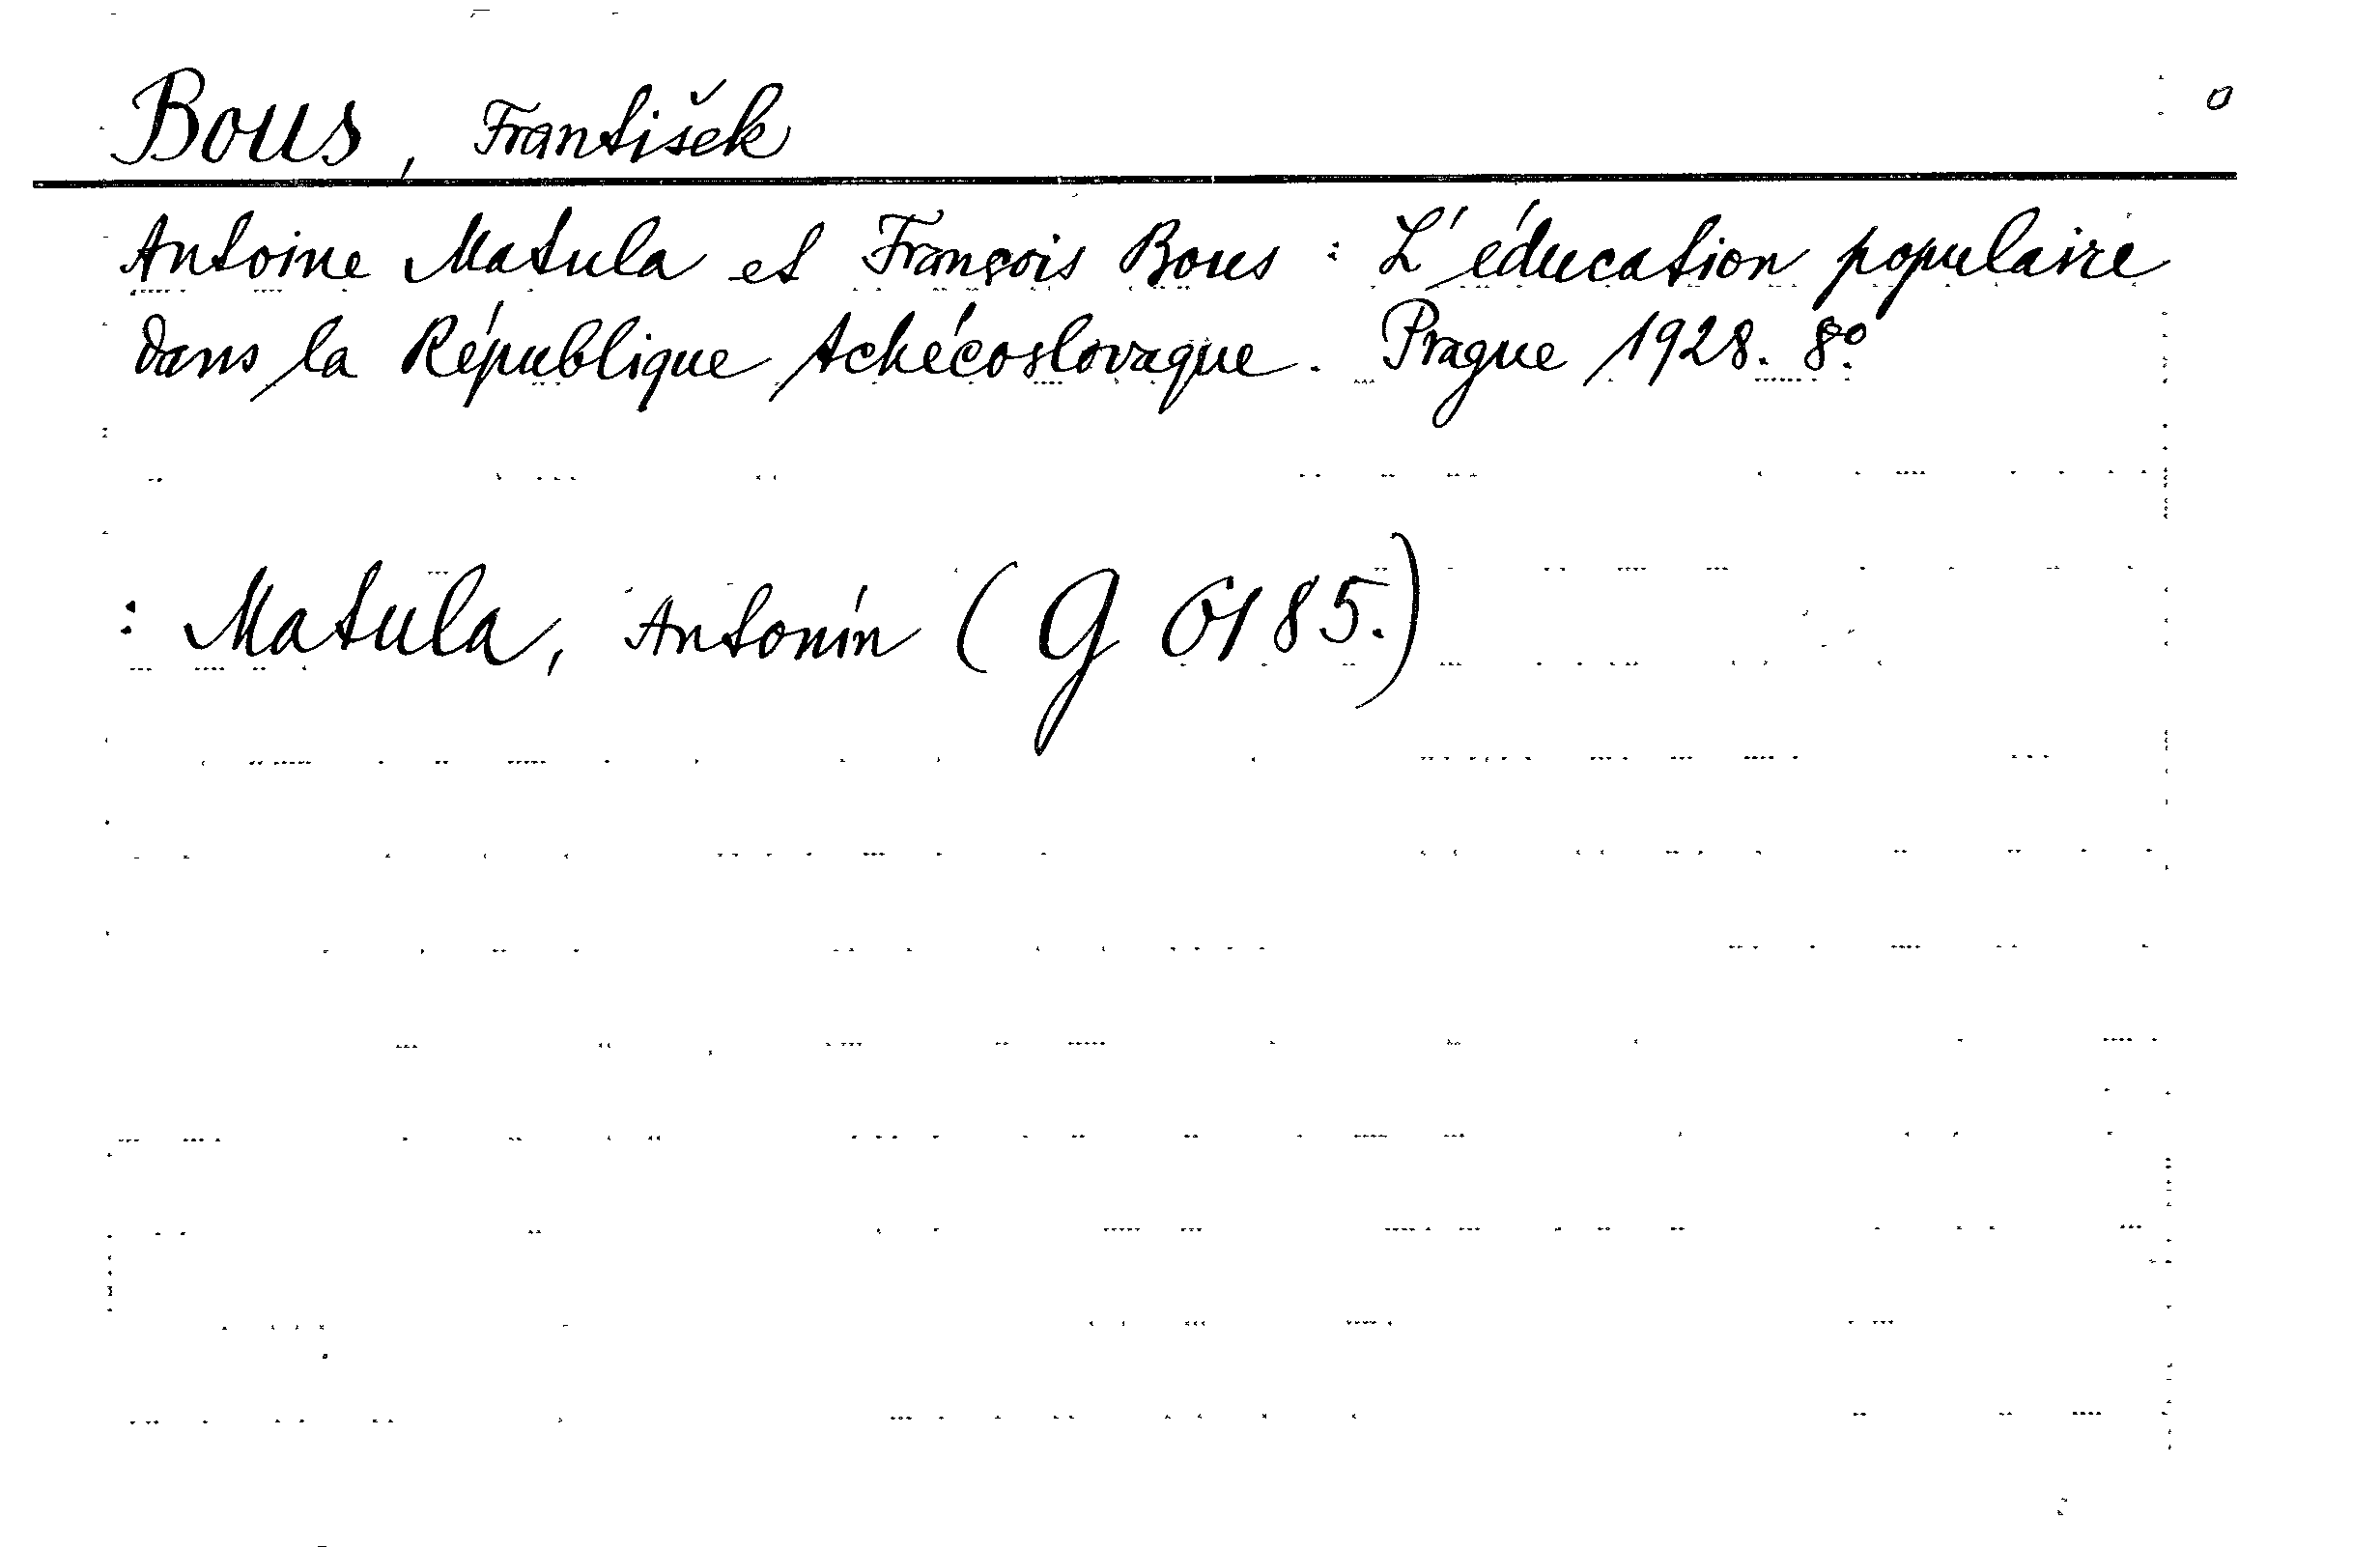 Bous, František
Antoine Matula et François Bous : L'éducation populaire
dans la République tchécoslovaque. Prague 1928. 8°.
: Matula, Antonín (G 6185.)